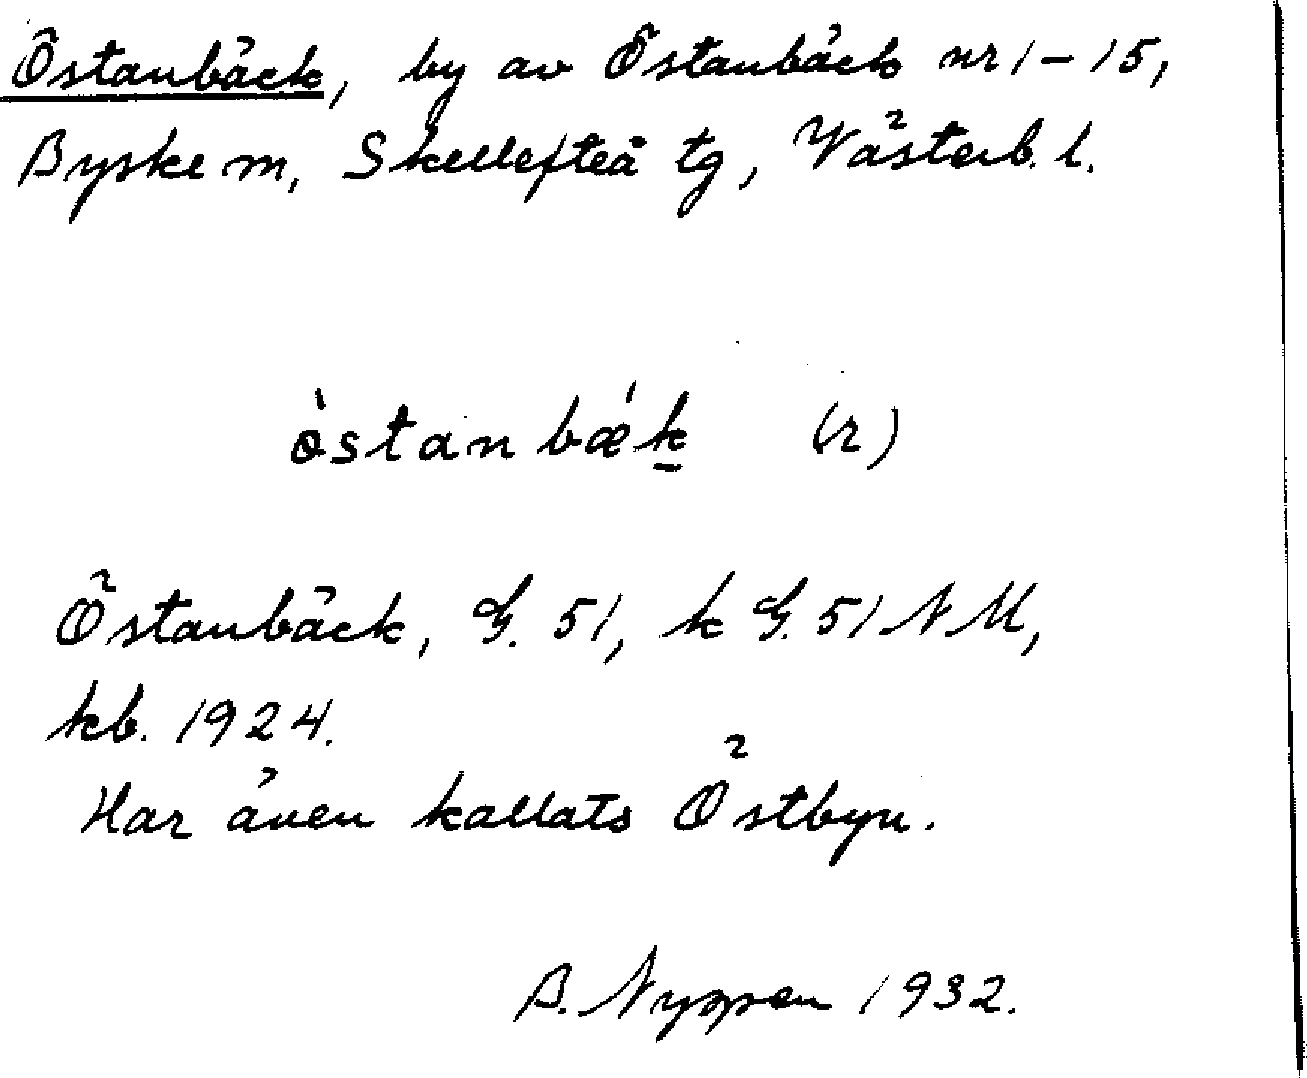 Östanbäck, by av Östanbäck nr 1-15,
Byske sn, Skellefteå tg, Västerb. l.
òstanbǽk̲ (r)
Östanbäck, G. 51, k G. 51 NM,
kb. 1924.
Har även kallats Östbyn.
A. Nyman 1932.